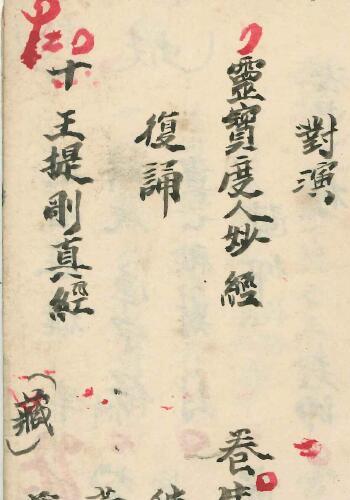 對演
靈寶度人妙經
卷
復誦
十王提剛真經
（藏）